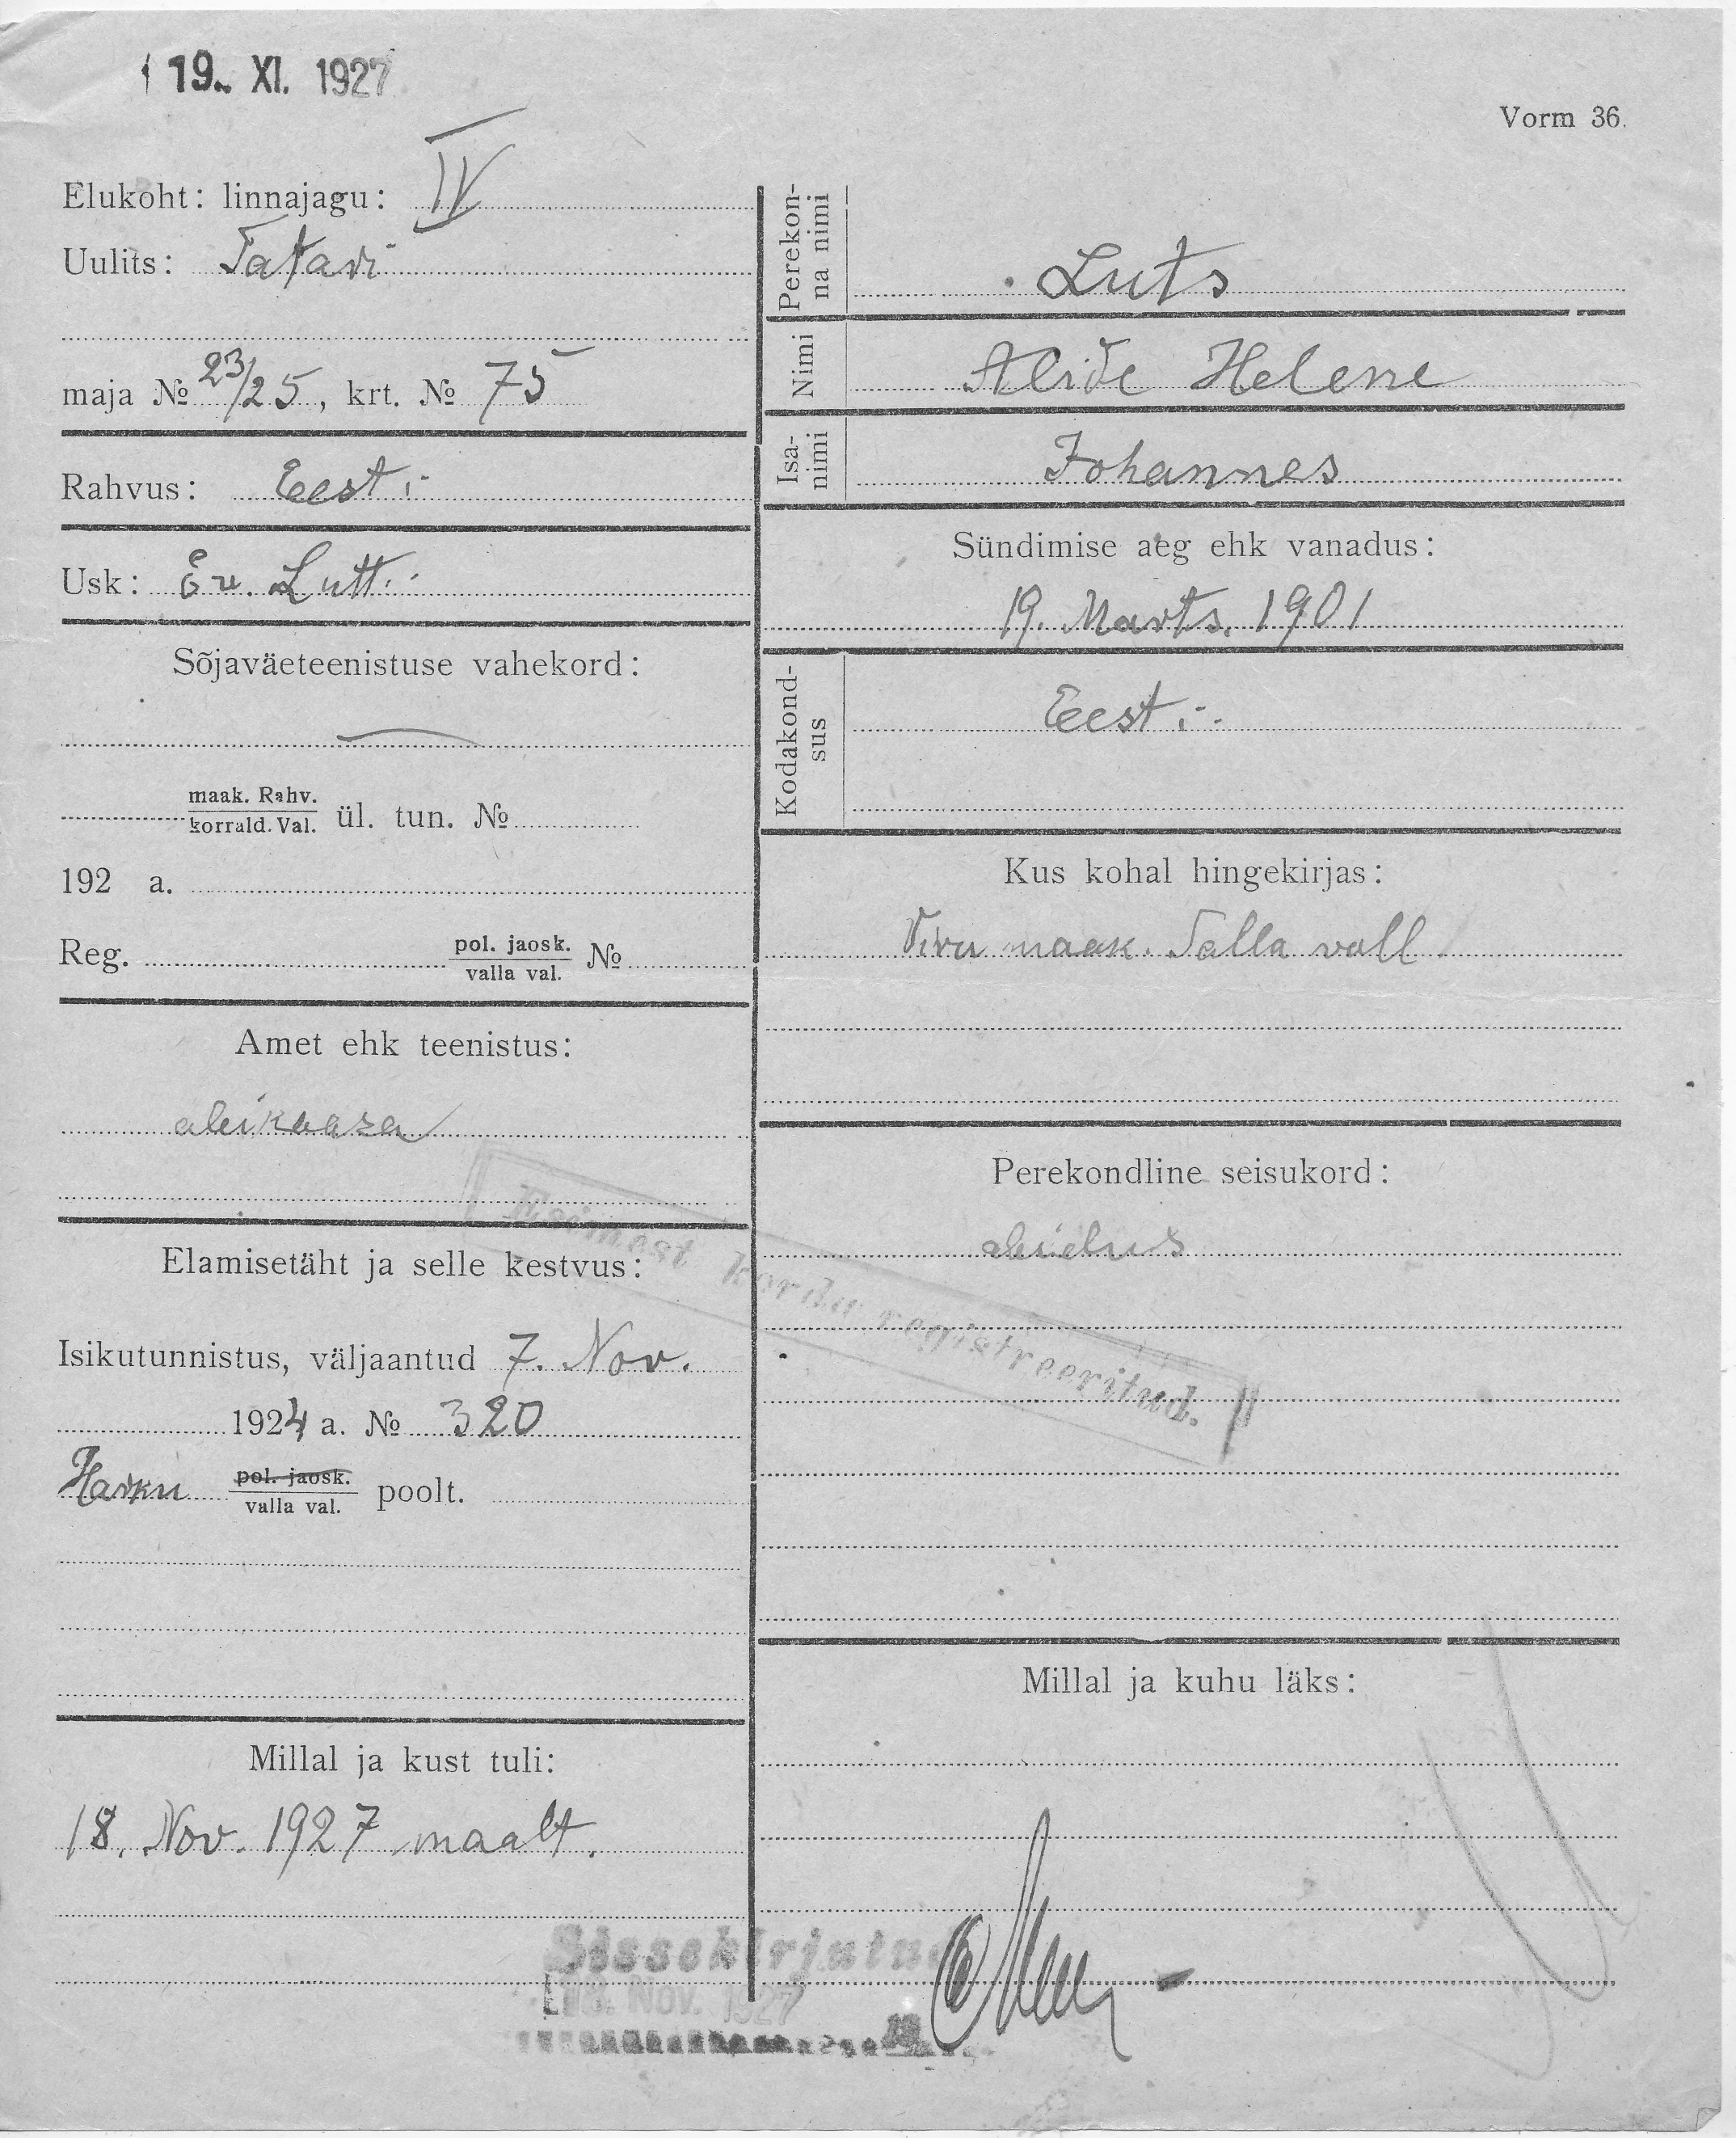 19. XI. 1927
Vorm 36.
Elukoht: linnajagu: IV
Uulits: Tatari
maja № 23/25, krt. № 75
Rahvus: Eesti
Usk: Ev. Lutt.
Sõjaväeteenistuse vahekord:
maak. Rahv.
korrald. Val. ül. tun. №
192 a.
Reg. pol. jaosk.
valla val. №
Amet ehk teenistus:
abikaasa
Elamisetäht ja selle kestvus:
Isikutunnistus, väljaantud 7. Nov.
1924 a. № 320
Harku pol. jaosk.
valla val. poolt.
Millal ja kust tuli:
18. Nov. 1927 maalt.
Perekon-
na nimi
Luts
Nimi
Alide Helene
Isa-
nimi
Johannes
Sündimise aeg ehk vanadus:
19. Marts. 1901
Kodakond-
sus
Eesti
Kus kohal hingekirjas:
Viru maak. Salla vall
Perekondline seisukord:
abielus
Esimest korda registreeritud.
Millal ja kuhu läks:
Sissekirjutu
18. Nov. 1927